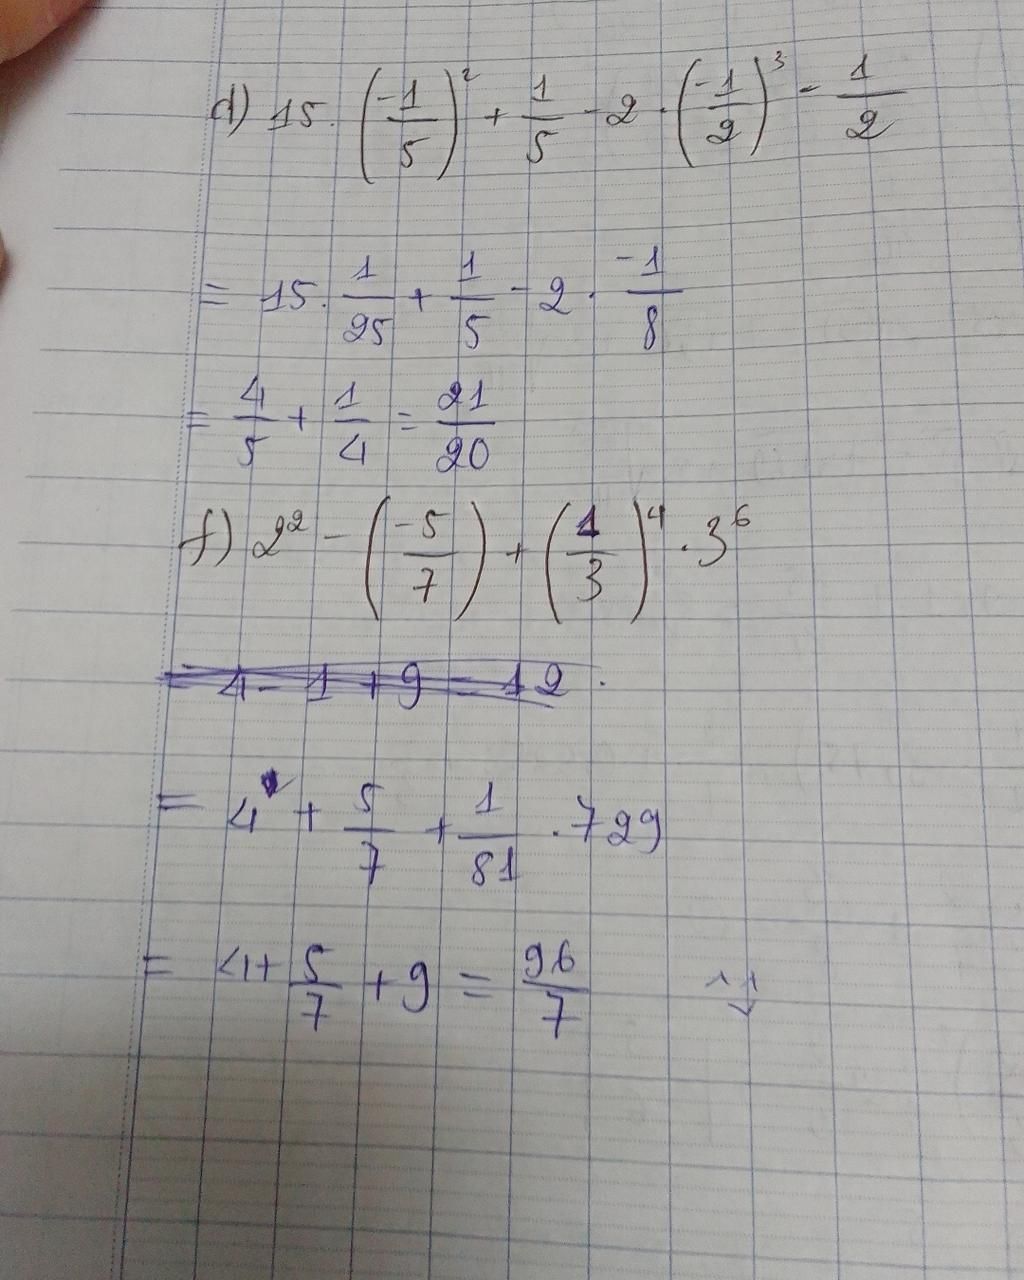 d) 15 . (-1/5)² + 1/5 - 2 . (-1/2)³ - 1/2
= 15 . 1/25 + 1/5 - 2 . -1/8
= 4/5 + 1/4 = 21/20
f) 2² - (-5/7) + (1/3)⁴ . 3⁶
= 4 - 1 + 9 = 12 .
= 4 + 5/7 + 1/81 . 729
= 4 + 5/7 + 9 = 96/7